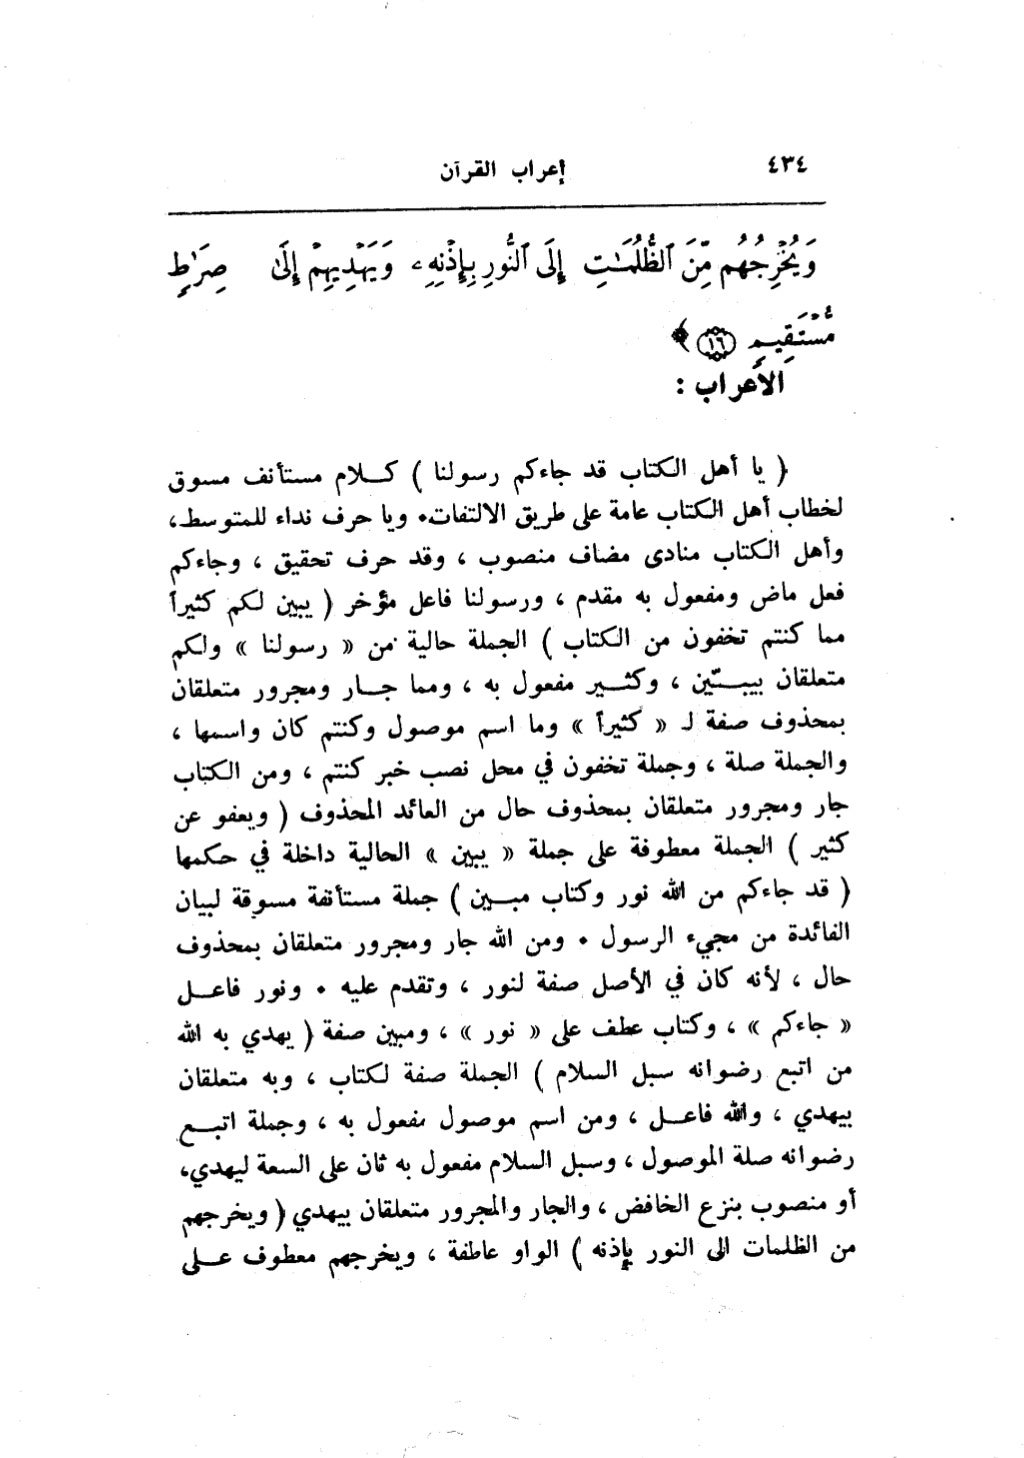 ٤٣٤
إعراب القرآن
وَيُخْرِجُهُم مِّنَ ٱلظُّلُمَـٰتِ إِلَى ٱلنُّورِ بِإِذْنِهِۦ وَيَهْدِيهِمْ إِلَىٰ صِرَٰطٍ
مُّسْتَقِيمٍ ١٦ ﴾
الأعراب :
( يا أهل الكتاب قد جاءكم رسولنا ) كـلام مستأنف مسوق
لخطاب أهل الكتاب عامة على طريق الالتفات. ويا حرف نداء للمتوسط،
وأهل الكتاب منادى مضاف منصوب ، وقد حرف تحقيق ، وجاءكم
فعل ماض ومفعول به مقدم ، ورسولنا فاعل مؤخر ( يبين لكم كثيراً
مما كنتم تخفون من الكتاب ) الجملة حالية من « رسولنا » ولكم
متعلقان بيبـيّن ، وكثـير مفعول به ، ومما جـار ومجرور متعلقان
بمحذوف صفة لـ « كثيراً » وما اسم موصول وكنتم كان واسمها ،
والجملة صلة ، وجملة تخفون في محل نصب خبر كنتم ، ومن الكتاب
جار ومجرور متعلقان بمحذوف حال من العائد المحذوف ( ويعفو عن
كثير ) الجملة معطوفة على جملة « يبين » الحالية داخلة في حكمها
( قد جاءكم من الله نور وكتاب مبـين ) جملة مستأنفة مسوقة لبيان
الفائدة من مجيء الرسول . ومن الله جار ومجرور متعلقان بمحذوف
حال ، لأنه كان في الأصل صفة لنور ، وتقدم عليه . ونور فاعـل
« جاءكم » ، وكتاب عطف على « نور » ، ومبين صفة ( يهدي به الله
من اتبع رضوانه سبل السلام ) الجملة صفة لكتاب ، وبه متعلقان
بيهدي ، والله فاعـل ، ومن اسم موصول مفعول به ، وجملة اتبـع
رضوانه صلة الموصول ، وسبل السلام مفعول به ثان على السعة ليهدي،
أو منصوب بنزع الخافض ، والجار والمجرور متعلقان بيهدي ( ويخرجهم
من الظلمات الى النور بإذنه ) الواو عاطفة ، ويخرجهم معطوف عـلى